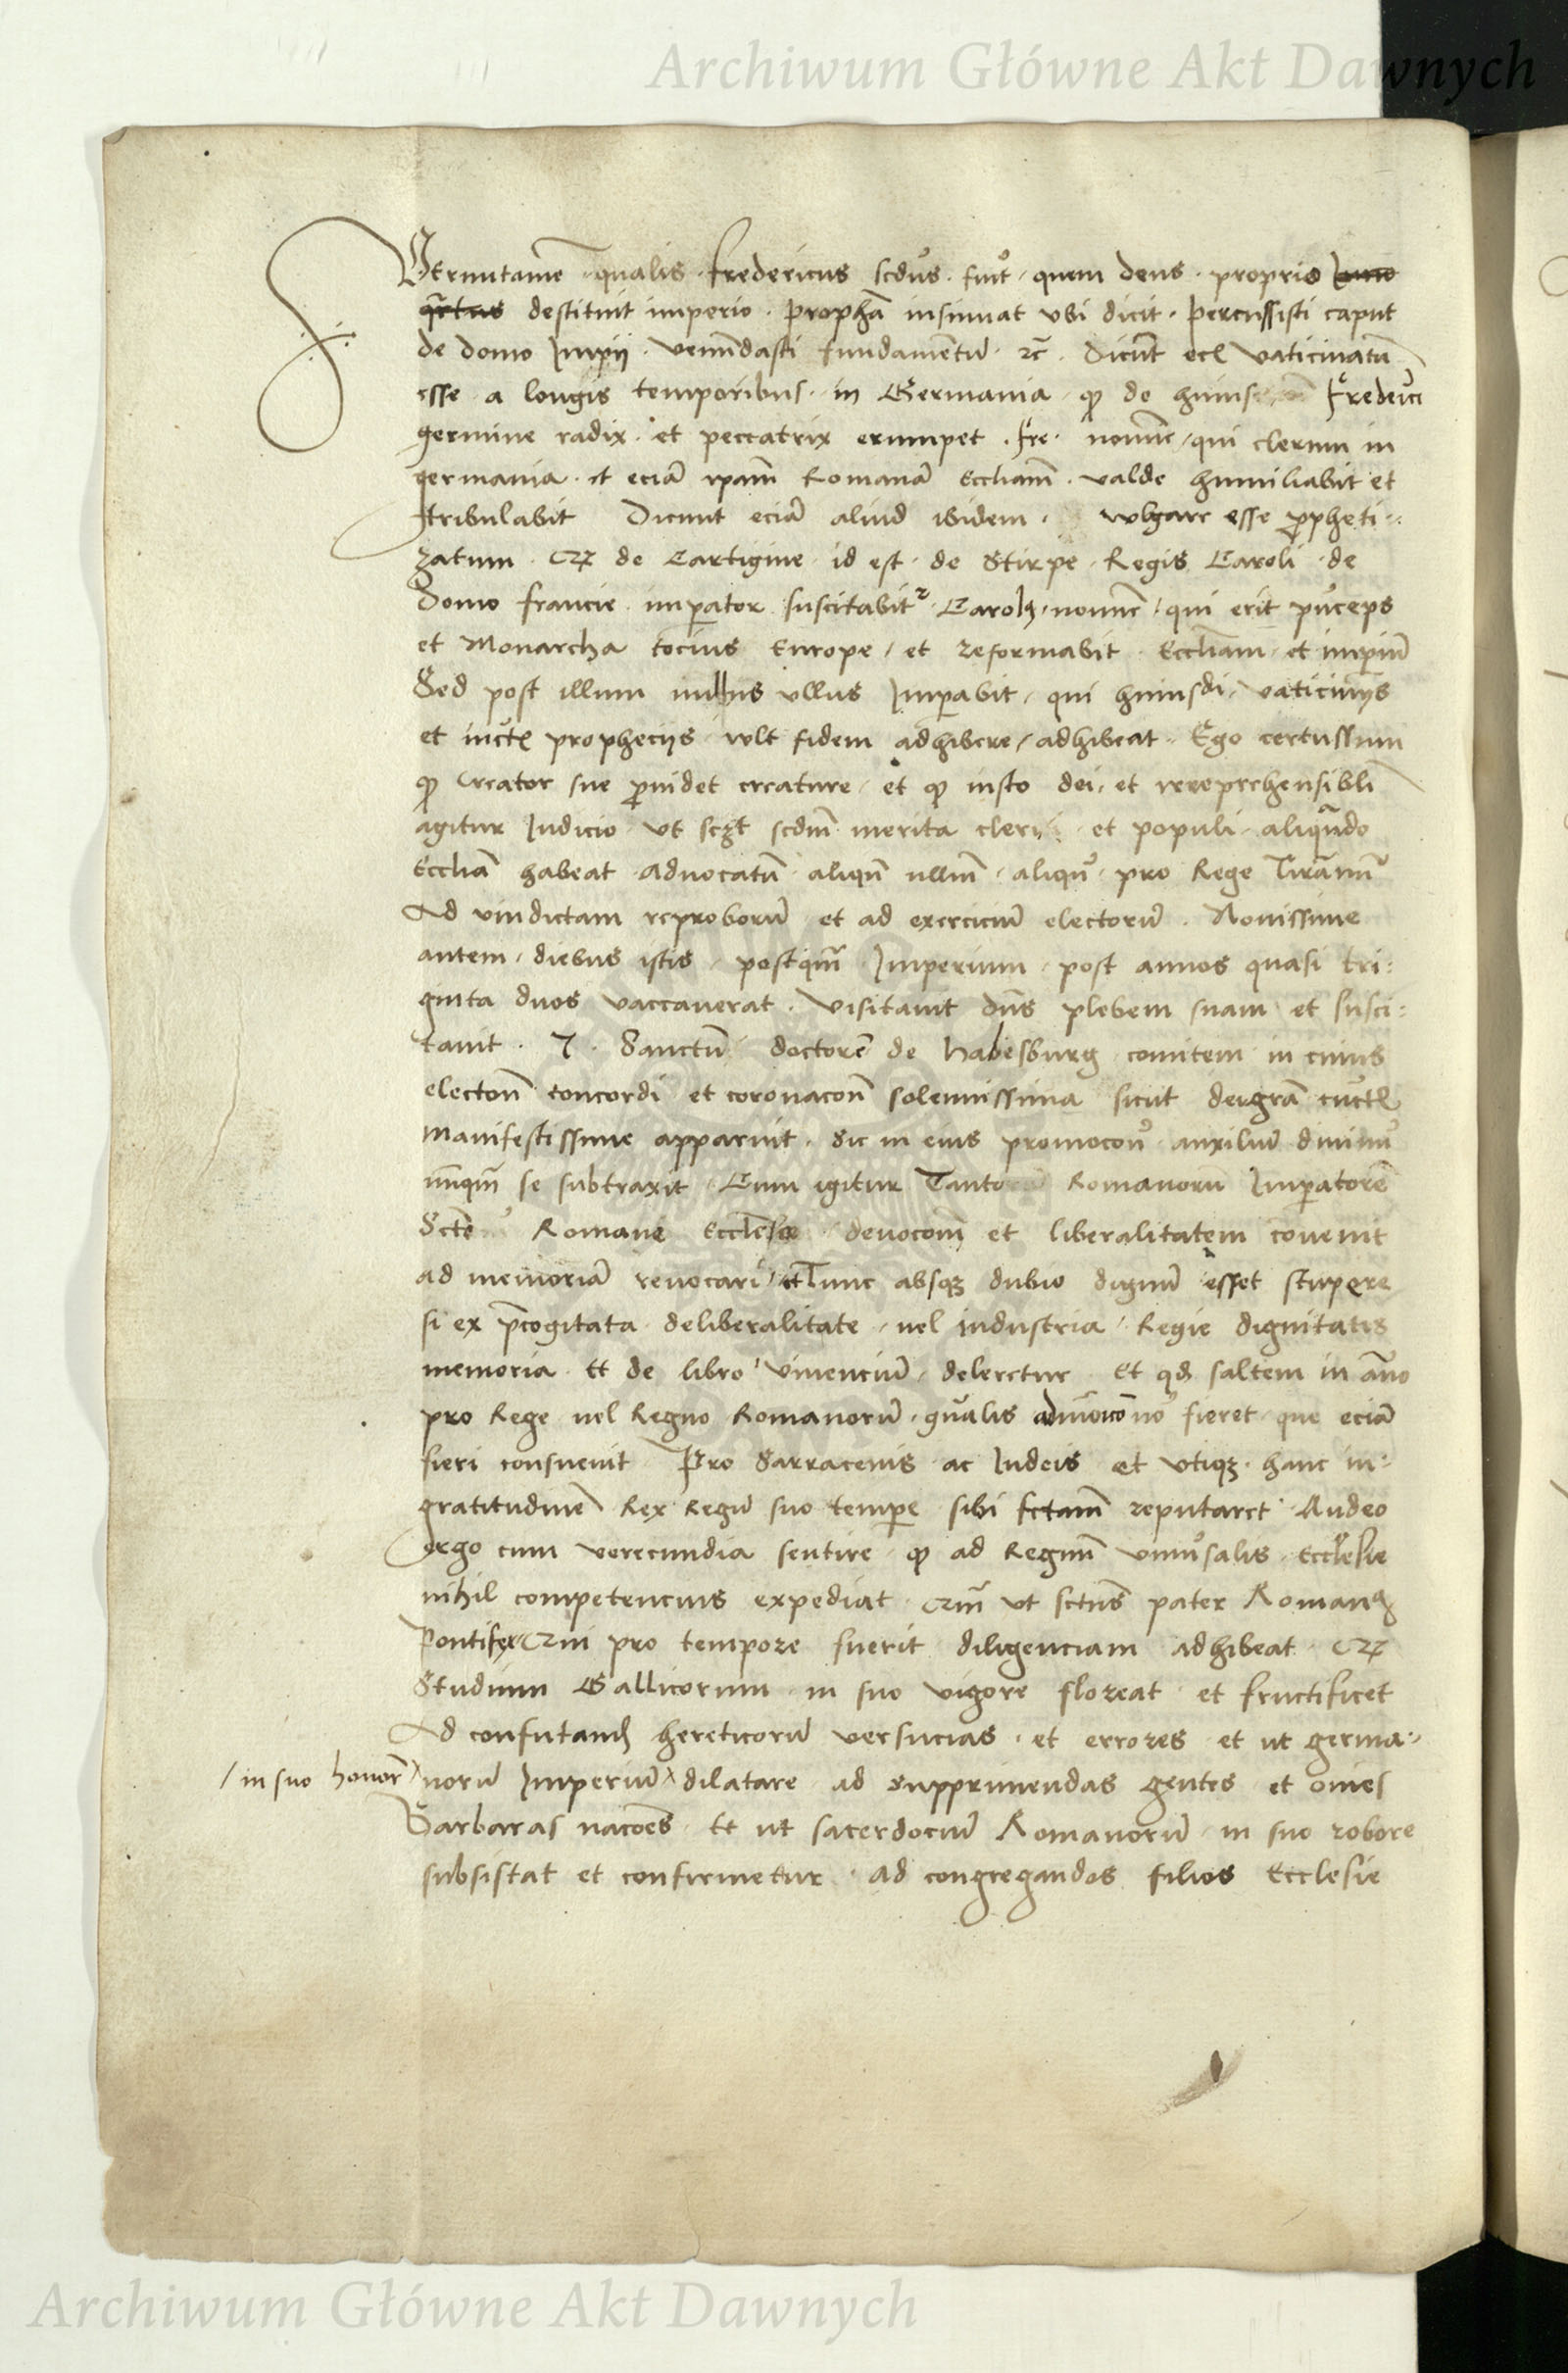 Archiwum Główne Akt Dawnych
Verumtamē qualis Fredericus scdus fuit quem deus proprio
destituit imperio prophā insinuat vbi dicit percussisti caput
de domo Impii denudasti fundamentū Dicūt vaticinatū
esse a longis temporibus in Germania de huius Frederici
germine radix et peccatrix erumpet Fre nomine qui clerum in
germania et eciā ipam Romanā Eccliam valde humiliabit et
tribulabit Dicunt eciā aliud ibidem wlgare esse propheti
zatum de Cartigine id est de Stirpe Regis Caroli de
Domo francie impator suscitabit nomine qui erit princeps
et Monarcha tocius Europe et reformabit Eccliam et imperiū
Sed post illum nullus Impabit qui huiusdi vaticiniis
et propheciis wlt fidem adhibere adhibeat Ego certus sum
Creator sue prouidet creature et iusto dei et irreprehensibli
agitur Iudicio ut scdm merita cleri et populi aliquādo
Ecclia habeat Aduocatū pro Rege Tirannū
Ad vindictam reproborū et ad exerciciū electorū Nouissime
antem diebus istis postqm Imperium post annos quasi tri
ginta duos vaccauerat visitauit dns plebem suam et susci
tauit Sanctū doctorē de habesburg comitem in cuius
electoē concordi et coronacoē solemnissima sicut dei grā
manifestissime apparuit Sic in eius auxiliū diuinū
nunqm se subtraxit Cum igitur Romanorū Imperatorē
Romane Ecclesie deuocoem et liberalitatem conenit
ad memoriā reuocari et Tunc absq dubio dignū esset stupore
si ex precogitata deliberalitate uel industria Regie dignitatis
memoria Et de libro viuenciū deleretur Et qd saltem in
pro Rege uel Regno Romanorū fieret que eciā
fieri consueuit Pro Sarracenis ac Iudeis et vtiq hanc in
gratitudinē Rex Regū suo tempe sibi fctam reputaret Audeo
ergo cum verecundia sentire ad Regimē vniuersalis Ecclesie
nihil competencius expediat ut sctus pater Romanus
Pontifex qui pro tempore fuerit diligenciam adhibeat
Studium Gallicorum in suo vigore floreat et fructificet
Ad confutand hereticorū versucias et errores et ut germa
/ in suo honor
norū Imperiū dilatare ad supprimendas gentes et omēs
Barbaras nacoēs Et ut sacerdociū Romanorū in suo robore
subsistat et confirmetur ad congregandos filios Ecclesie
Archiwum Główne Akt Dawnych